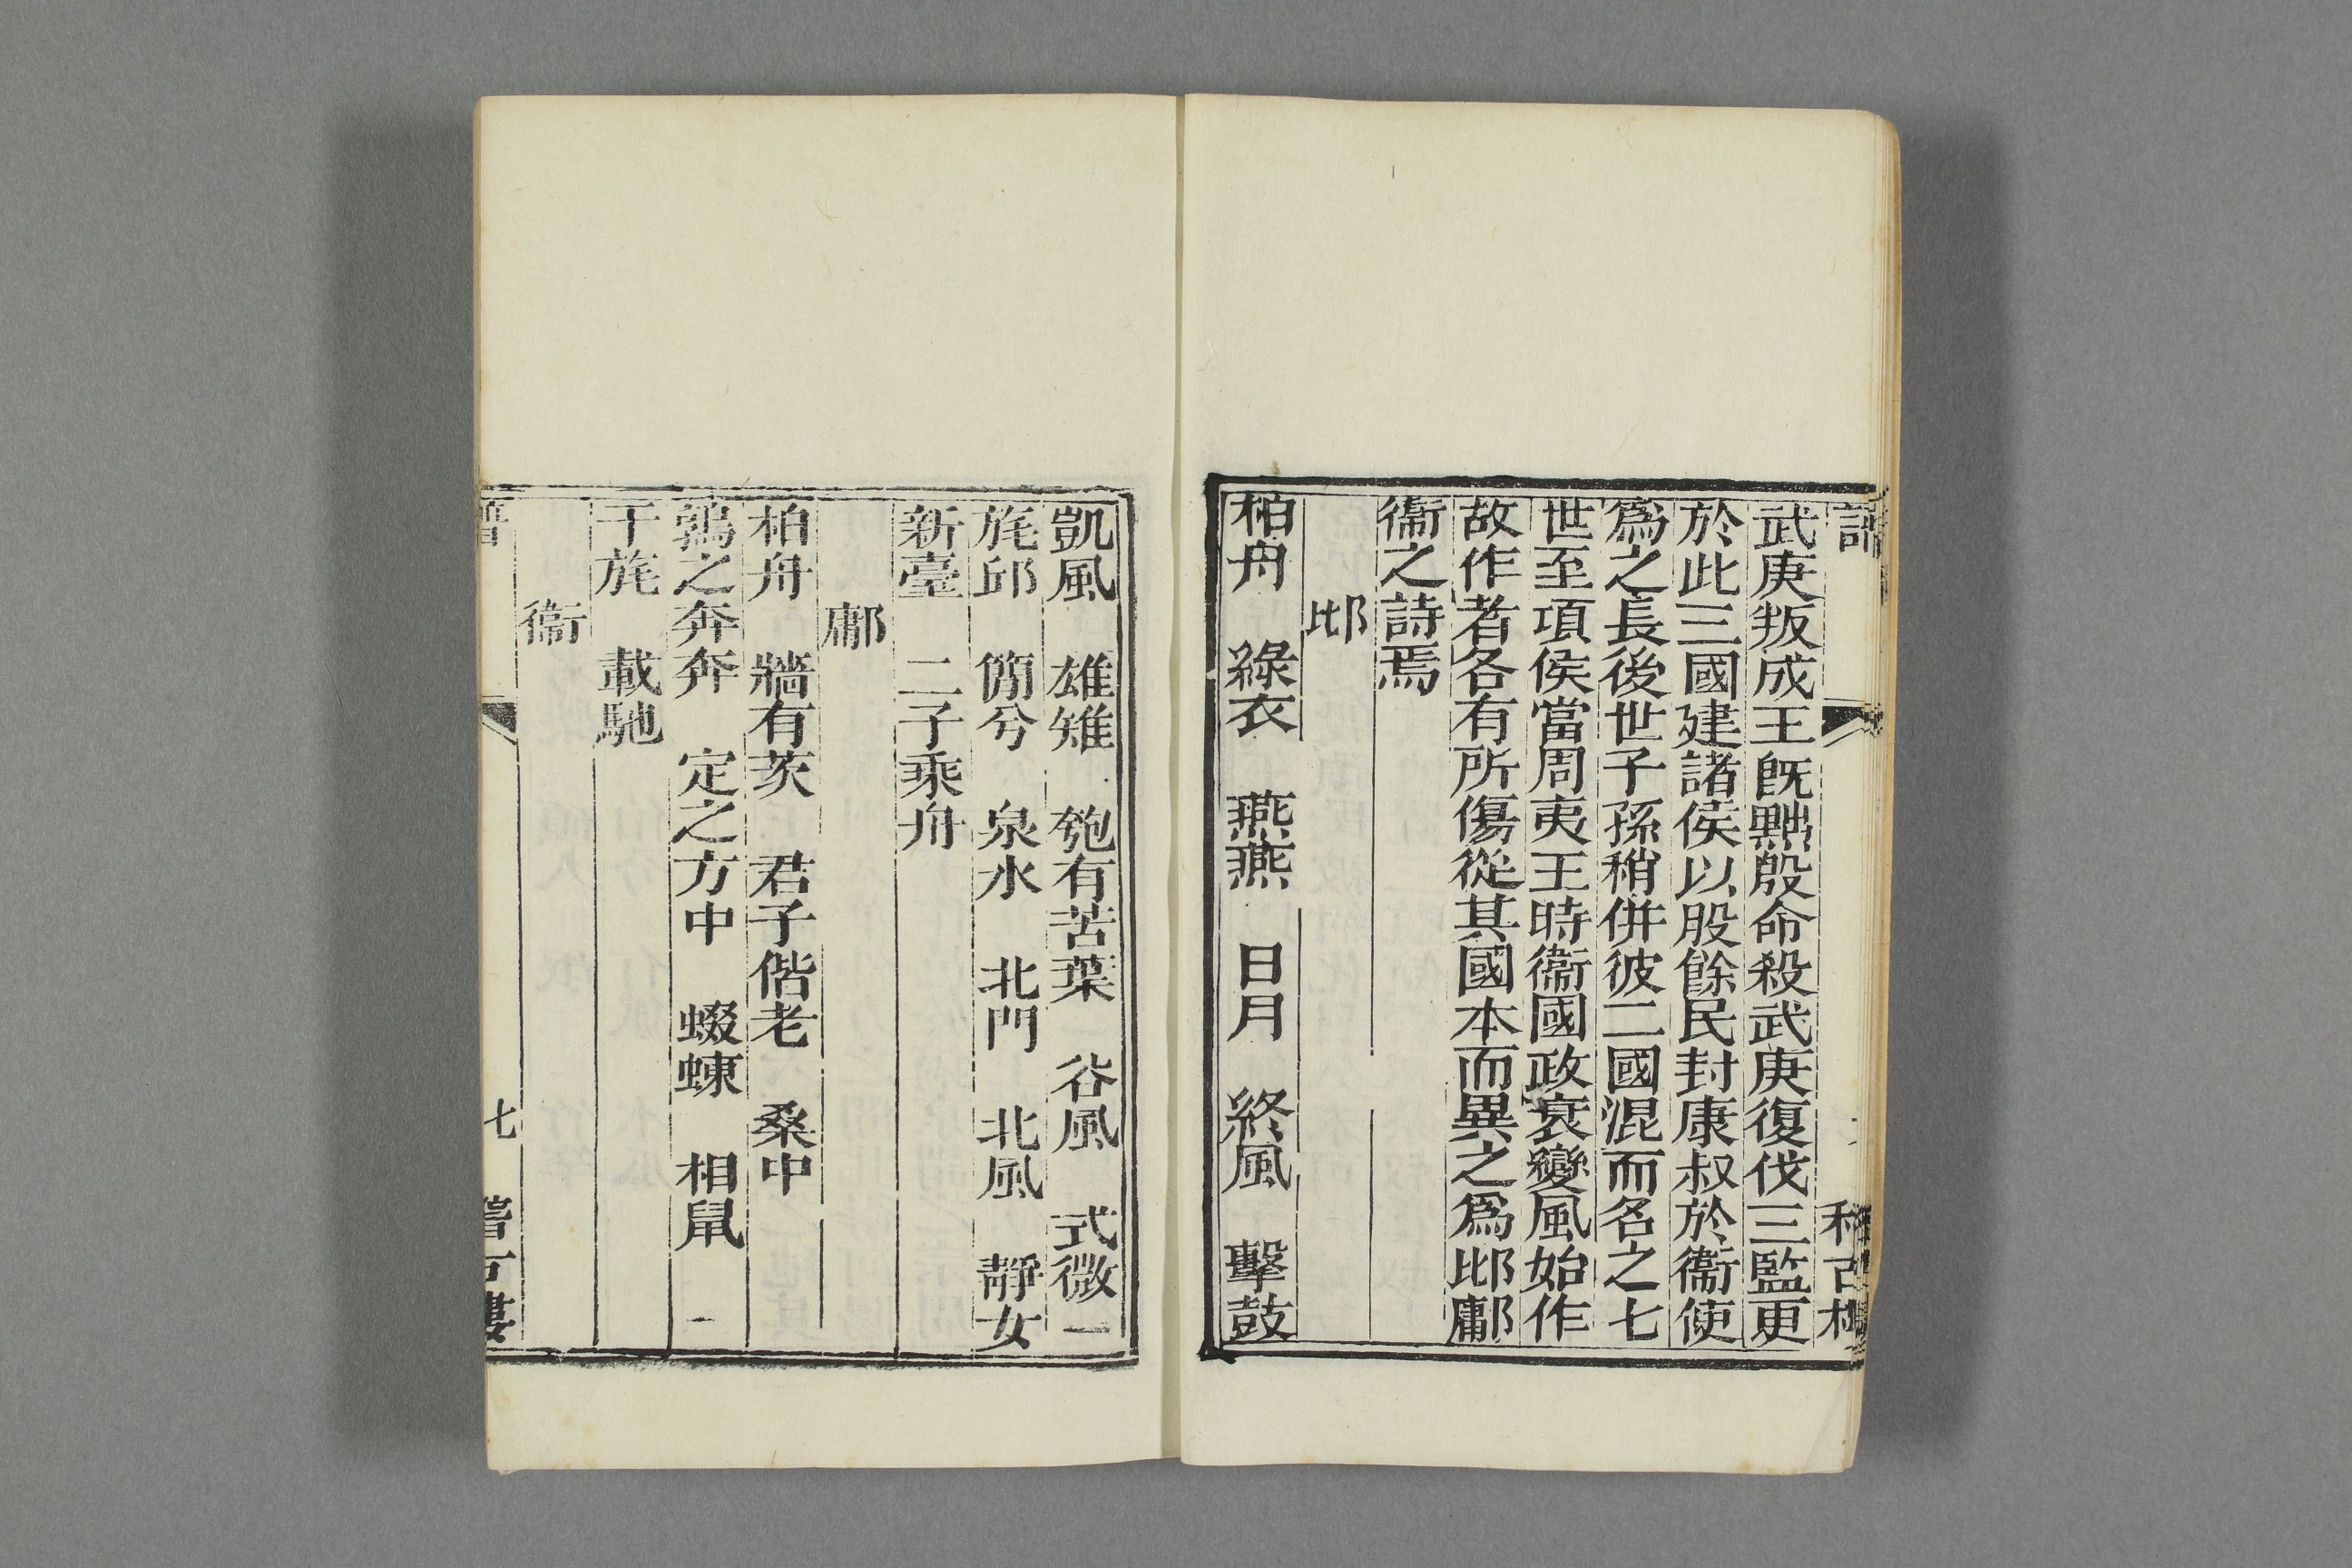 譜 稽古樓
武庚叛成王旣黜殷命殺武庚復伐三監更
於此三國建諸侯以殷餘民封康叔於衞使
爲之長後世子孫稍併彼二國混而名之七
世至項侯當周夷王時衞國政衰變風始作
故作者各有所傷從其國本而異之爲邶鄘
衞之詩焉
邶
柏舟 綠衣 燕燕 日月 終風 擊鼓
凱風 雄雉 匏有苦葉 谷風 式微
旄邱 簡兮 泉水 北門 北風 靜女
新臺 二子乘舟
鄘
柏舟 牆有茨 君子偕老 桑中
鶉之奔奔 定之方中 蝃蝀 相鼠
干旄 載馳
衞
譜 七 稽古樓